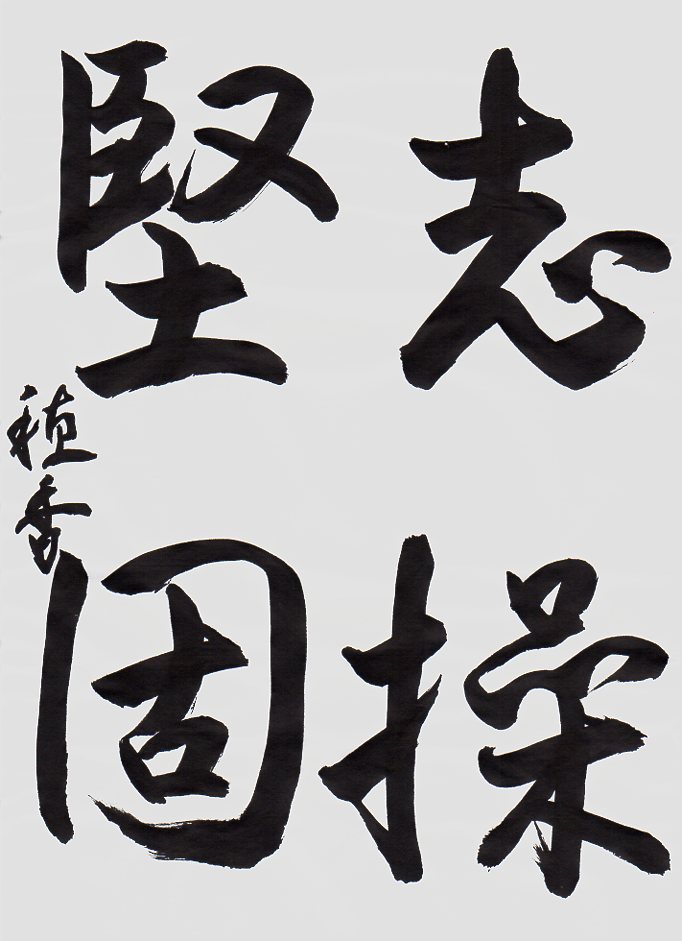 志操
堅固
植香